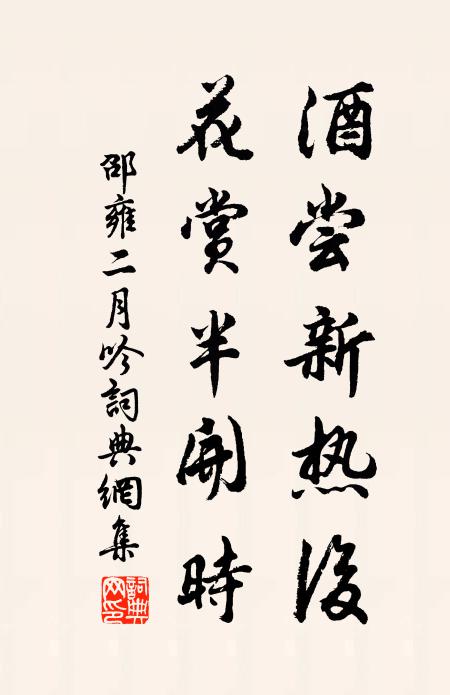 酒尝新热後
花賞半開時
邵雍二月吟詞典網集
詞典网印